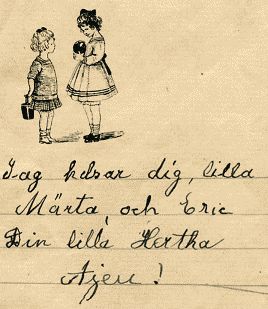 Jag helsar dig, lilla
Märta, och Eric
Din lilla Hertha
Ajeu!